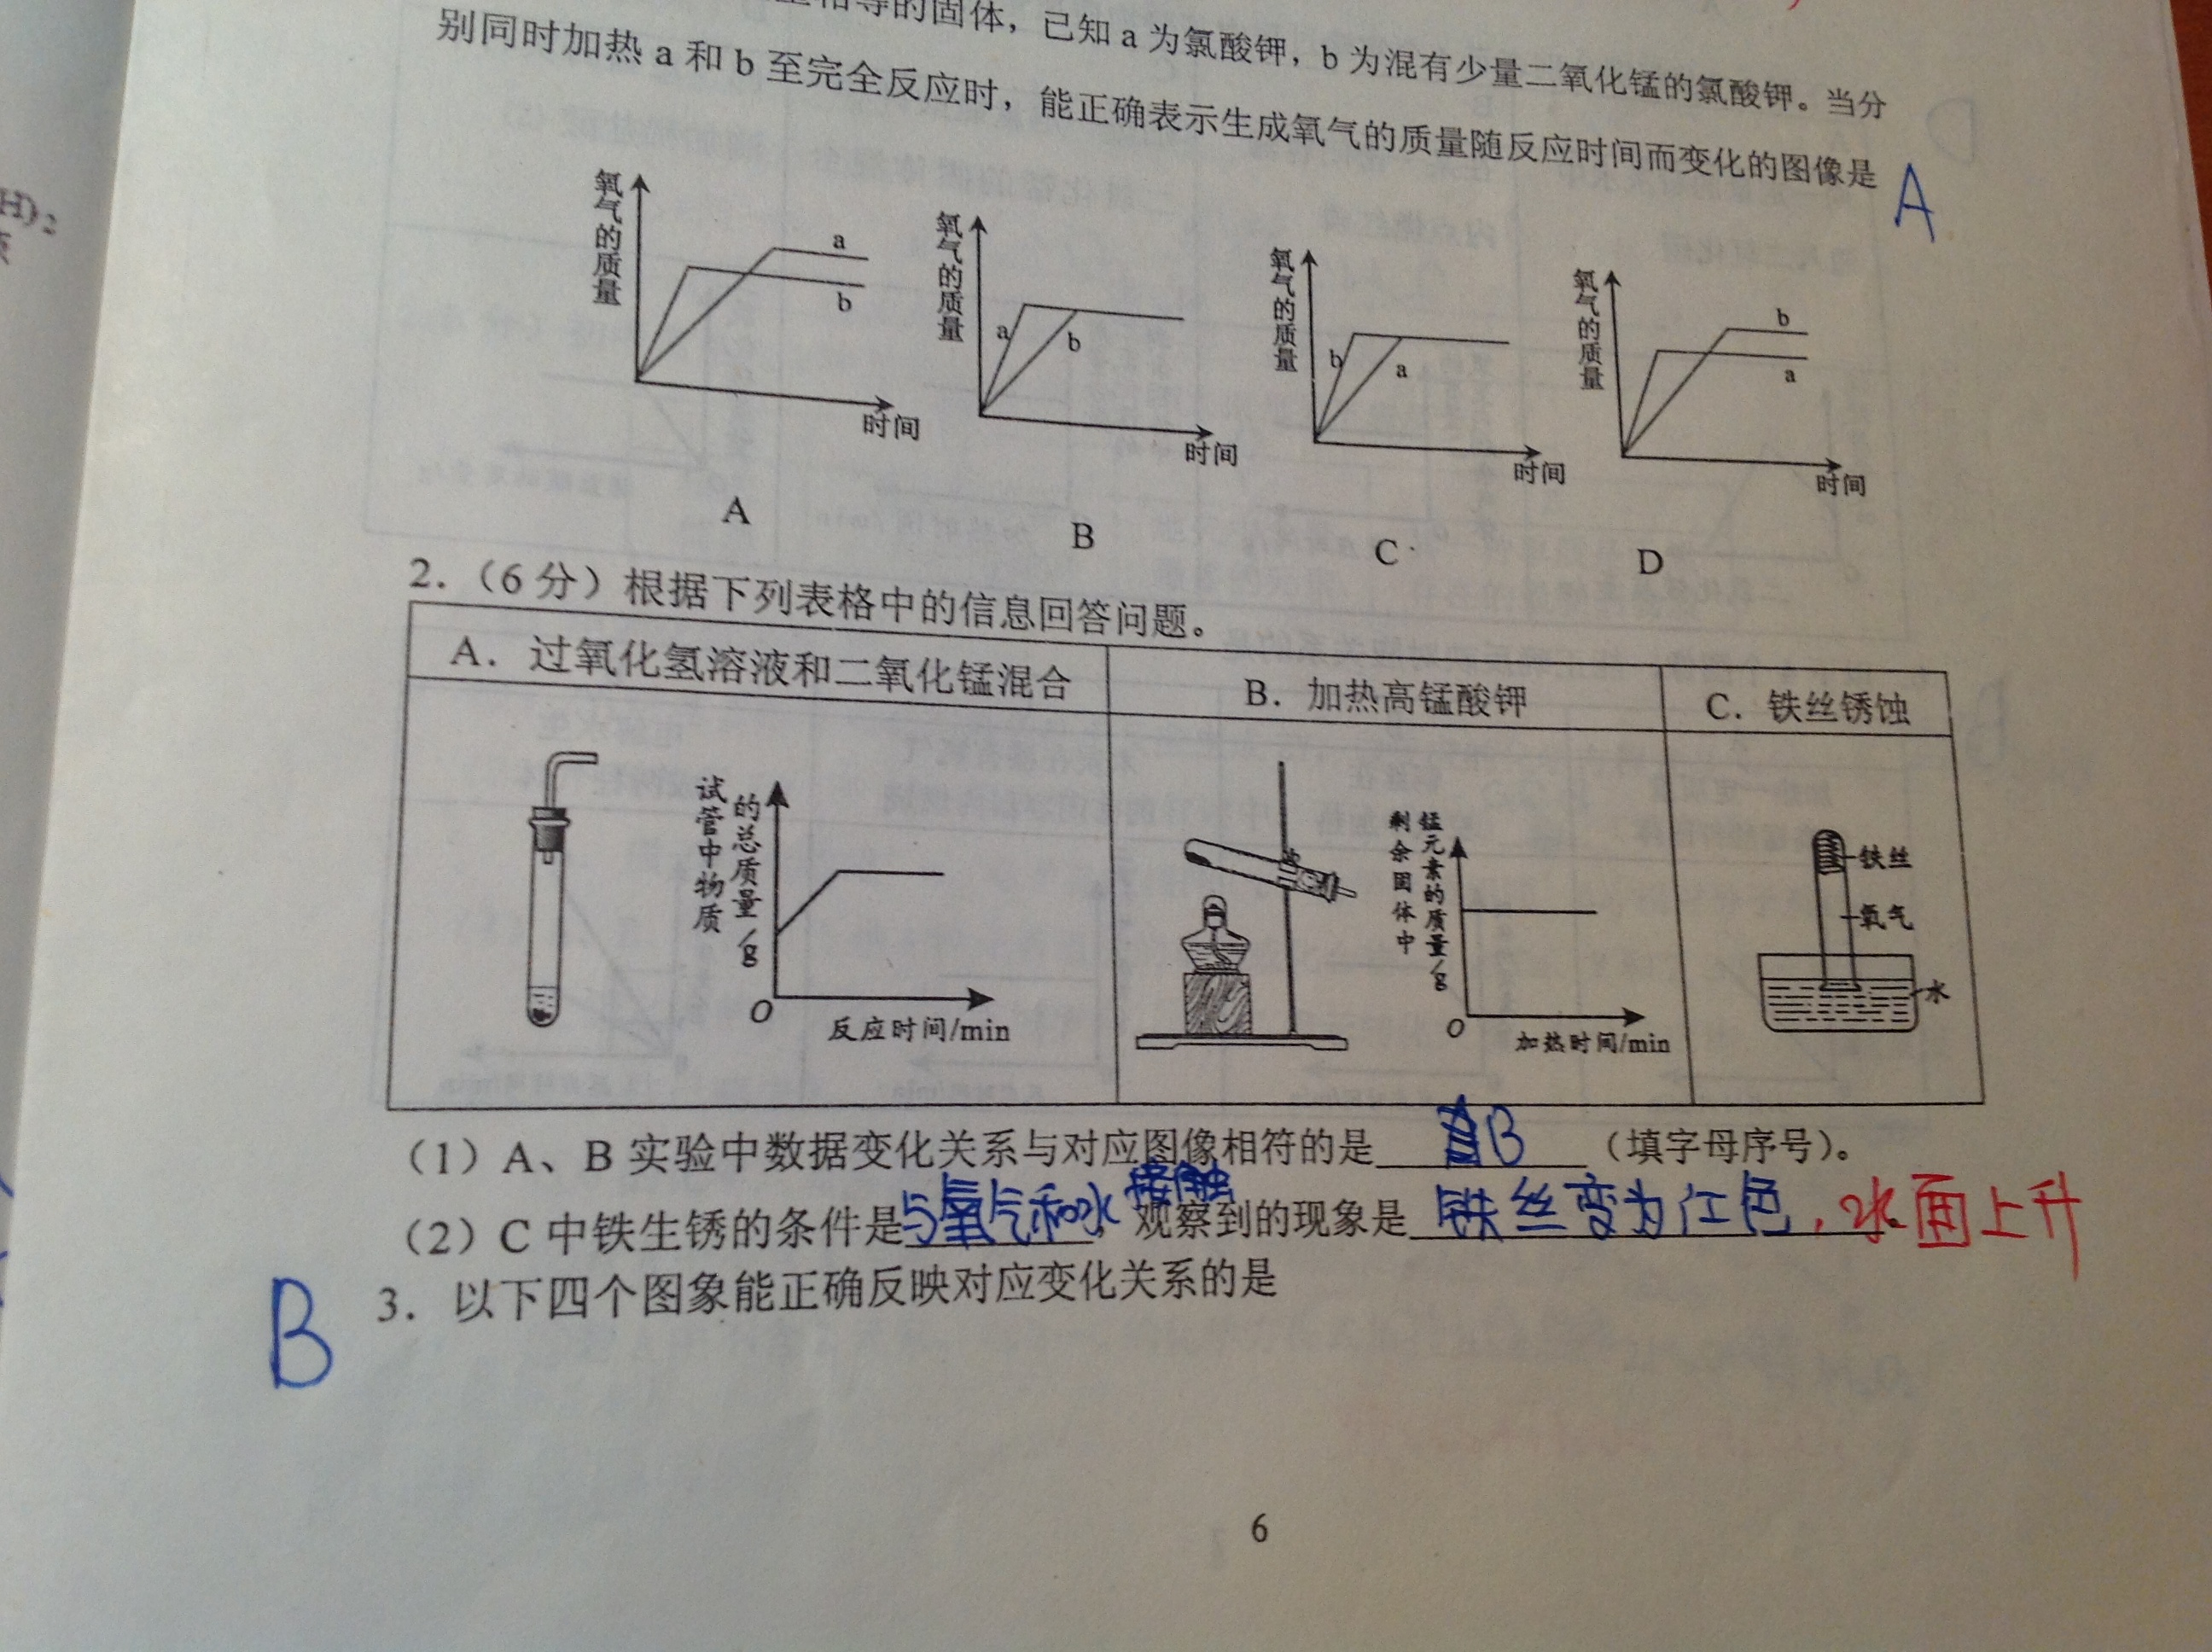 相等的固体，已知 a 为氯酸钾，b 为混有少量二氧化锰的氯酸钾。当分
别同时加热 a 和 b 至完全反应时，能正确表示生成氧气的质量随反应时间而变化的图像是 A
氧气的质量
a
b
时间
A
氧气的质量
a
b
时间
B
氧气的质量
b
a
时间
C
氧气的质量
b
a
时间
D
2.（6 分）根据下列表格中的信息回答问题。
A. 过氧化氢溶液和二氧化锰混合
B. 加热高锰酸钾
C. 铁丝锈蚀
试管中物质的总质量/g
O
反应时间/min
剩余固体中锰元素的质量/g
O
加热时间/min
铁丝
氧气
水
（1）A、B 实验中数据变化关系与对应图像相符的是 B （填字母序号）。
（2）C 中铁生锈的条件是与氧气和水接触，观察到的现象是 铁丝变为红色，水面上升
B 3. 以下四个图象能正确反映对应变化关系的是
6
H)2